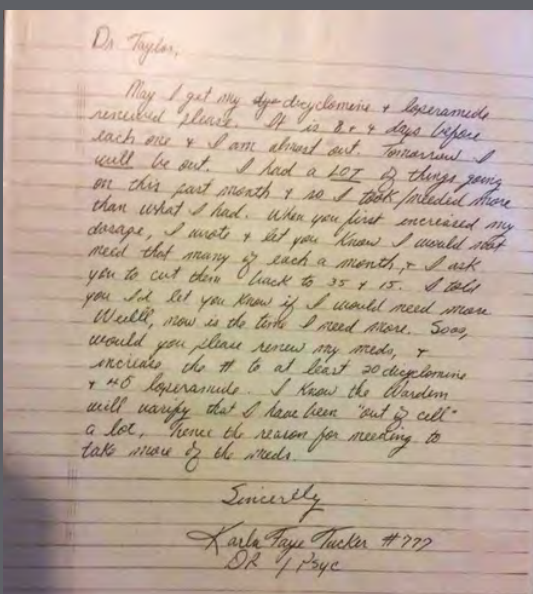 Dr. Taylor,
May I get my dicyclomine & loperamide
renewed please. It is 8 & 4 days before
each one & I am almost out. Tomorrow I
will be out. I had a LOT of things going
on this past month & so I took/needed more
than what I had. When you first increased my
dosage, I wrote & let you know I would not
need that many of each a month, & I ask
you to cut them back to 35 & 15. I told
you I'd let you know if I would need more
Wellll, now is the time I need more. Sooo,
would you please renew my meds, &
increase the # to at least 20 dicyclomine
& 40 loperamide. I know the Warden
will varify that I have been "out of cell"
a lot, hence the reason for needing to
take more of the meds.
Sincerlly
Karla Faye Tucker #777
DR / Psyc